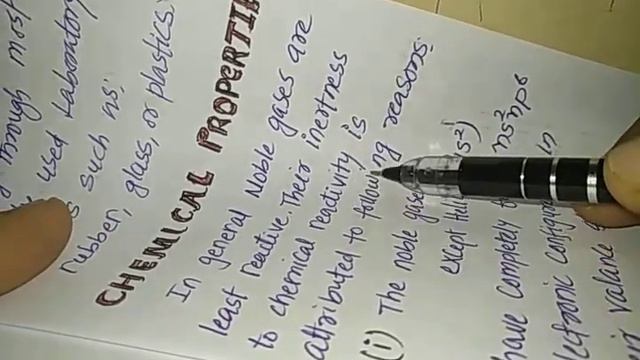 through most
used Laboratory
such as:
rubber, glass, or plastics.
CHEMICAL PROPERTI
In general Noble gases are
least reactive. Their inertness
to chemical reactivity is
attributed to following reasons:
(i) The noble gase s²)
except
have completely ns²np⁶
in
valance